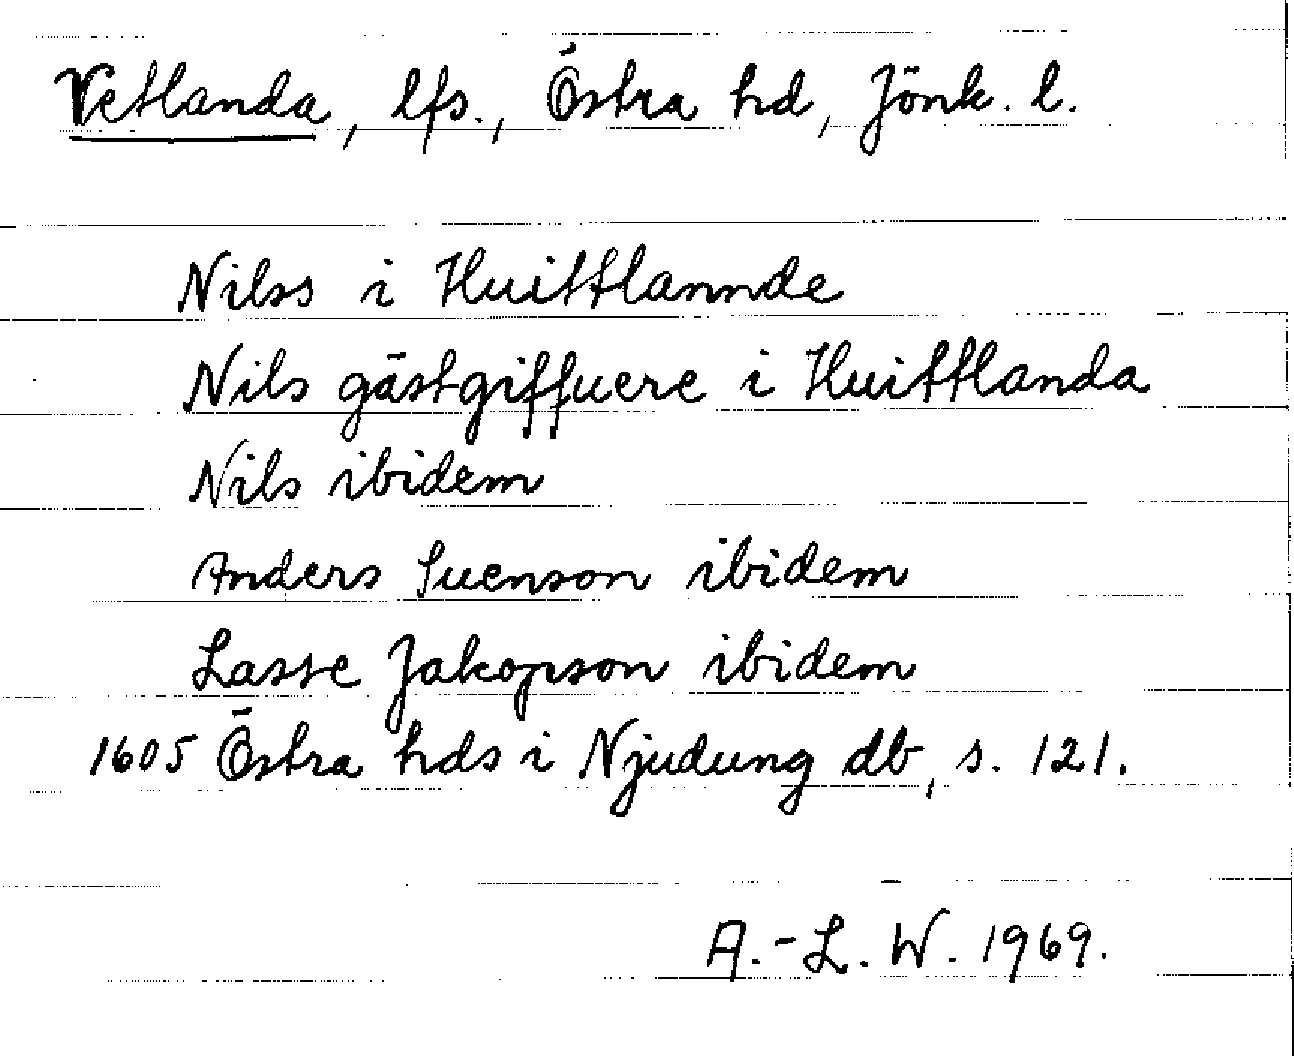 Vetlanda, lfs., Östra hd, Jönk. l.
Nilss i Huittlannde
Nils gästgiffuere i Huittlanda
Nils ibidem
Anders Suenson ibidem
Lasse Jakopson ibidem
1605 Östra hds i Njudung db, s. 121.
A.-L. W. 1969.